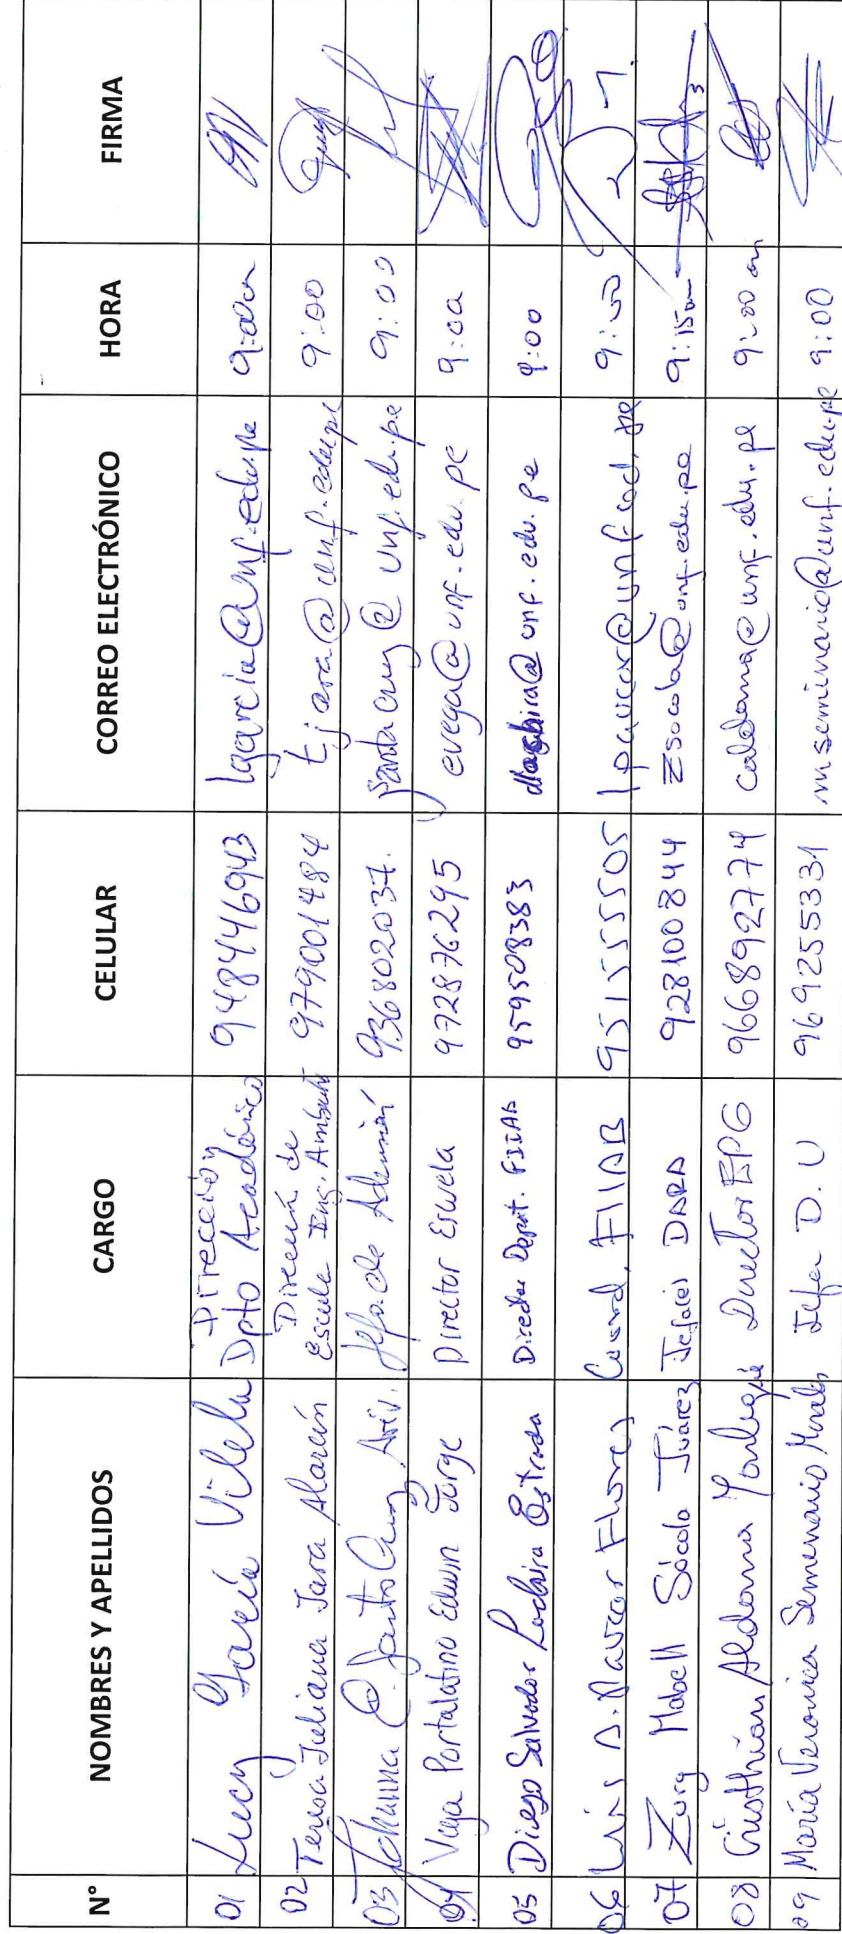 N° NOMBRES Y APELLIDOS CARGO CELULAR CORREO ELECTRÓNICO HORA FIRMA
01 Lucy García Vilela Dirección Dpto Académico 948446943 lgarcia@unf.edu.pe 9:00am
02 Teresa Juliana Jara Alarcón Directora de Escuela Ing. Ambient 979001484 tjara@unf.edu.pe 9:00
03 Johanna E. Santa Cruz Jefa de Admisión 936802037. jsantacruz@unf.edu.pe 9:00
04 Vega Portalatino Edwin Jorge Director Escuela 972876295 evega@unf.edu.pe 9:00
05 Diego Salvador Lachira Estrada Director Depart. FIIAB 959508383 dlachira@unf.edu.pe 9:00
06 Luis A. Paucar Flores Coord. FIIAB 951555505 lpaucar@unf.edu.pe 9:00
07 Zury Mabell Sócola Juárez Jefa(e) DARA 928100844 zsocola@unf.edu.pe 9:15am
08 Cristhian Aldana Yarlequé Director EPG 966892774 caldana@unf.edu.pe 9:00 am
09 María Veronica Semenario Morales Jefa D.U 969255331 mseminario@unf.edu.pe 9:00